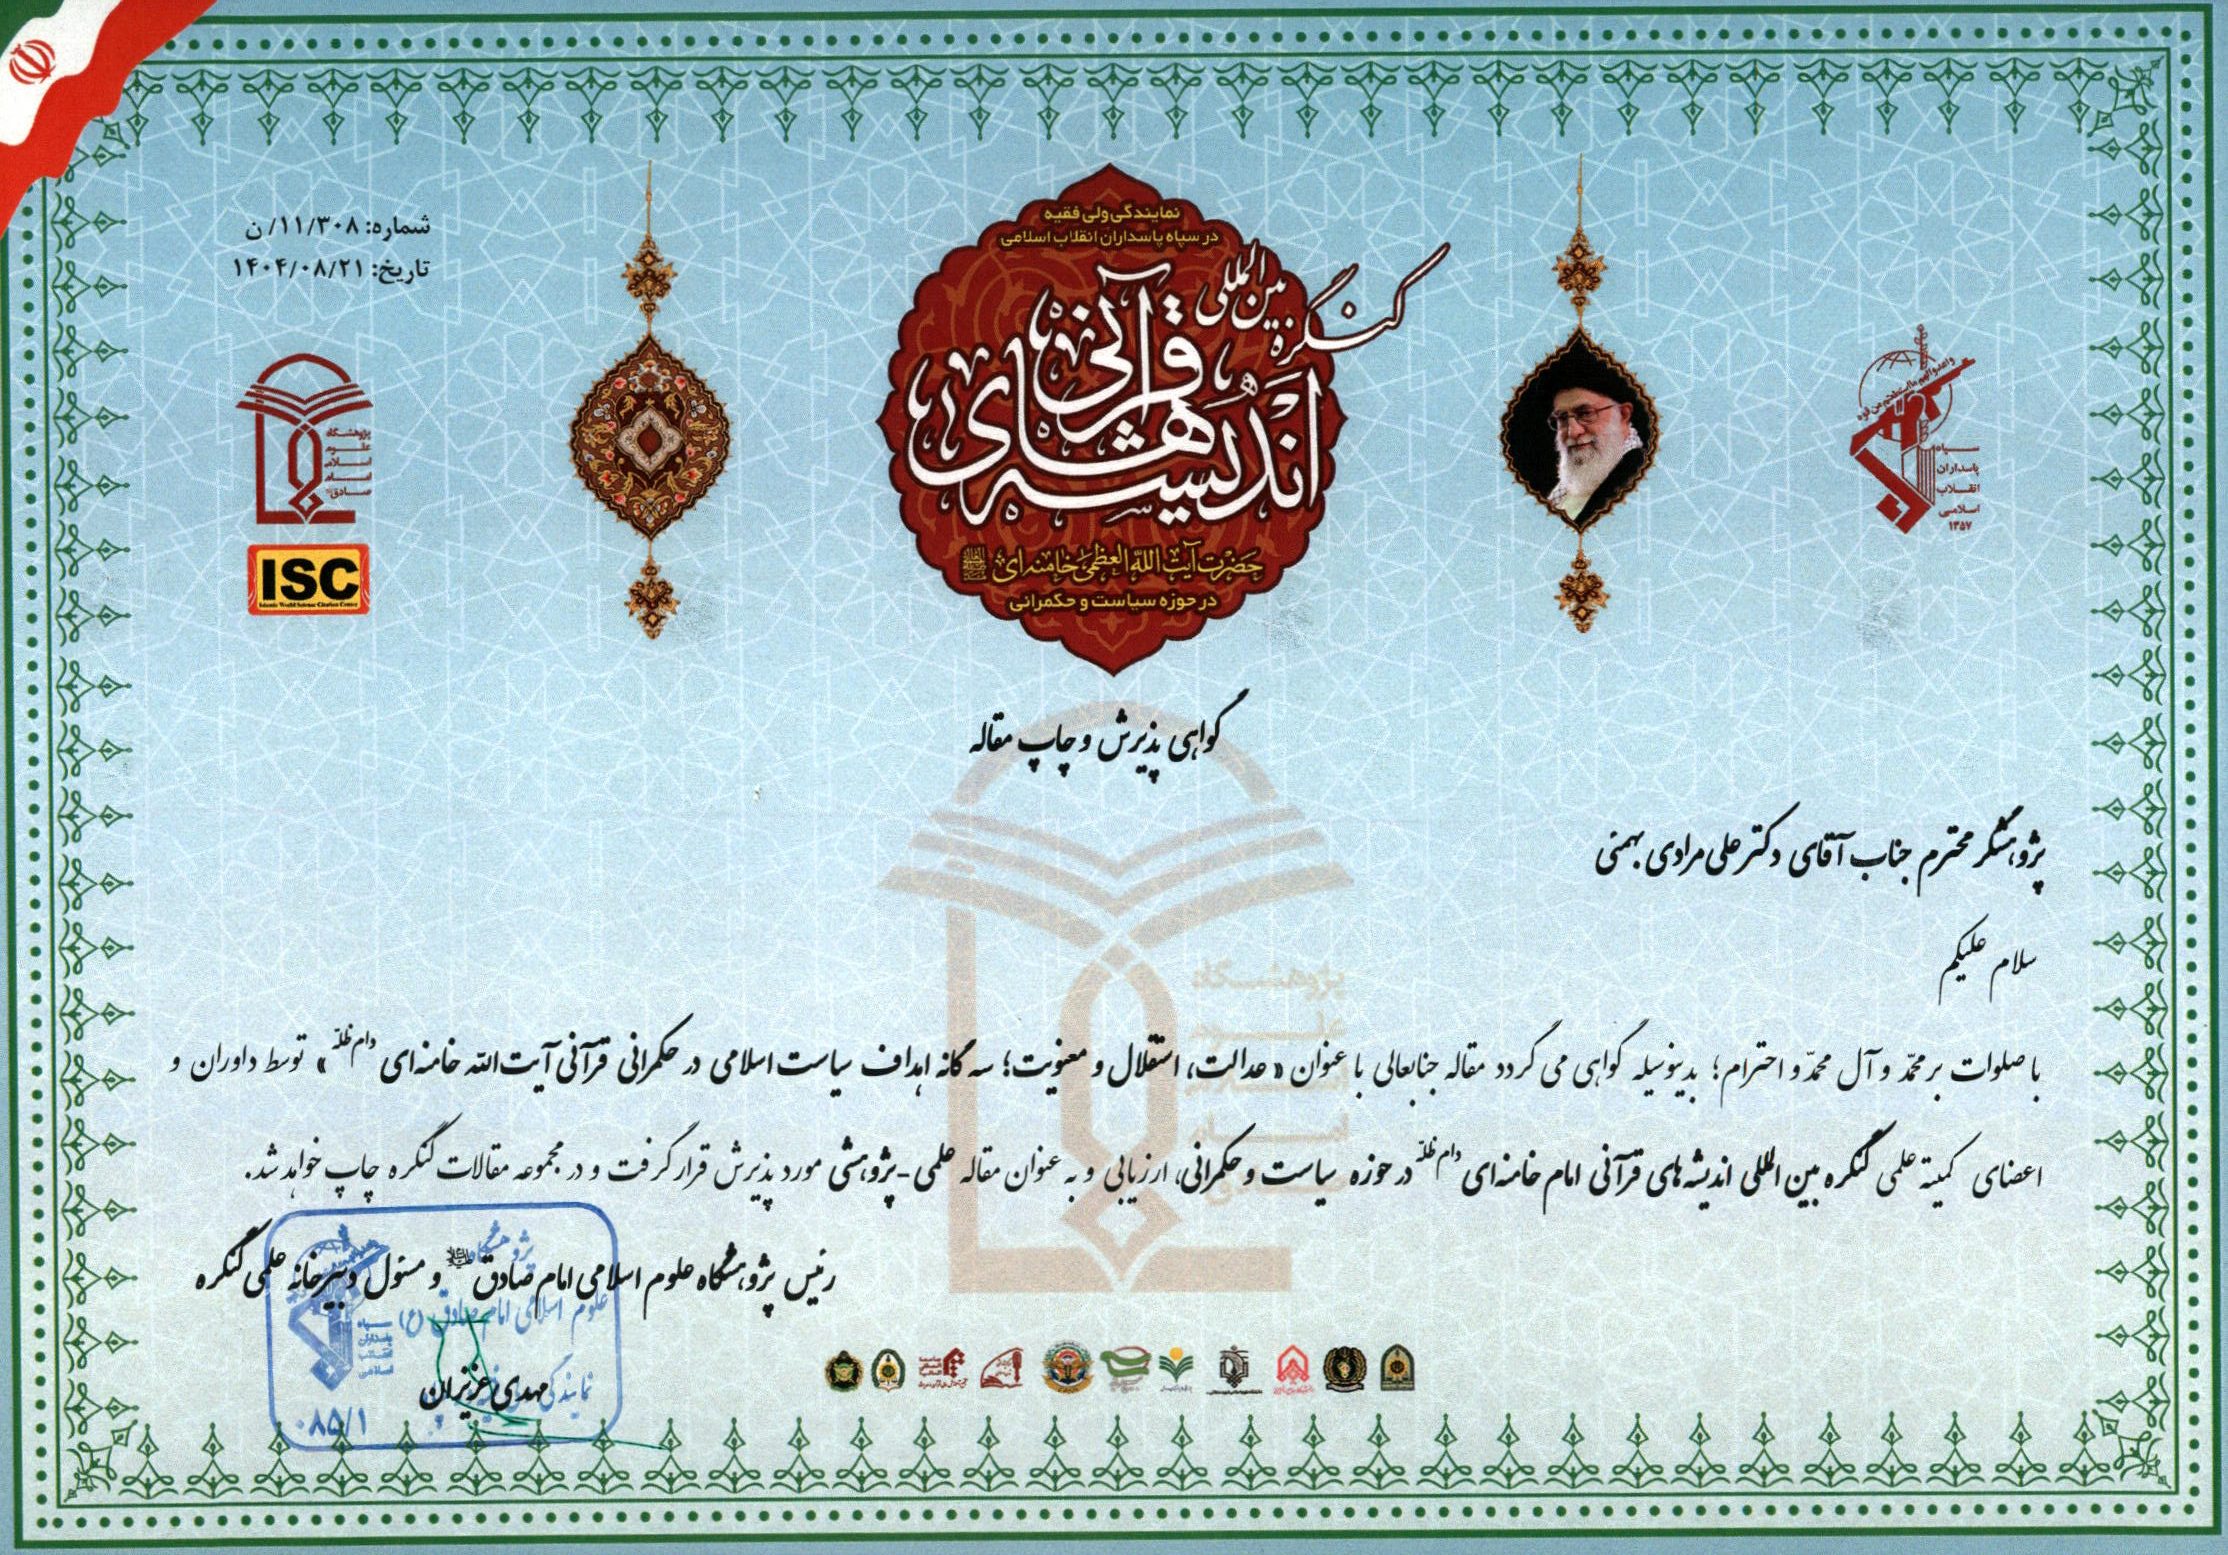 شماره: ۱۱/۳۰۸/ن
تاریخ: ۱۴۰۴/۰۸/۲۱
نمایندگی ولی فقیه
در سپاه پاسداران انقلاب اسلامی
کنگره بین المللی
اندیشه های قرآنی
حضرت آیت الله العظمی خامنه ای
در حوزه سیاست و حکمرانی
سپاه
پاسداران
انقلاب
اسلامی
۱۳۵۷
پژوهشگاه
علوم
اسلامی
امام
صادق
ISC
Islamic World Science Citation Center
گواهی پذیرش و چاپ مقاله
پژوهشگر محترم جناب آقای دکتر علی مرادی بهمنی
سلام علیکم
با صلوات بر محمّد و آل محمّد و احترام؛ بدینوسیله گواهی می گردد مقاله جنابعالی با عنوان «عدالت، استقلال و معنویت؛ سه گانه اهداف سیاست اسلامی در حکمرانی قرآنی آیت الله خامنه ای دام ظلّه» توسط داوران و
اعضای کمیته علمی کنگره بین المللی اندیشه های قرآنی امام خامنه ای دام ظلّه در حوزه سیاست و حکمرانی، ارزیابی و به عنوان مقاله علمی-پژوهشی مورد پذیرش قرار گرفت و در مجموعه مقالات کنگره چاپ خواهد شد.
رئیس پژوهشگاه علوم اسلامی امام صادق و مسئول دبیرخانه علمی کنگره
مهدی عزیزان
پژوهشگاه
علوم اسلامی امام صادق (ع)
سپاه
پاسداران
انقلاب
اسلامی
نمایندگی
۰۸۵/۱